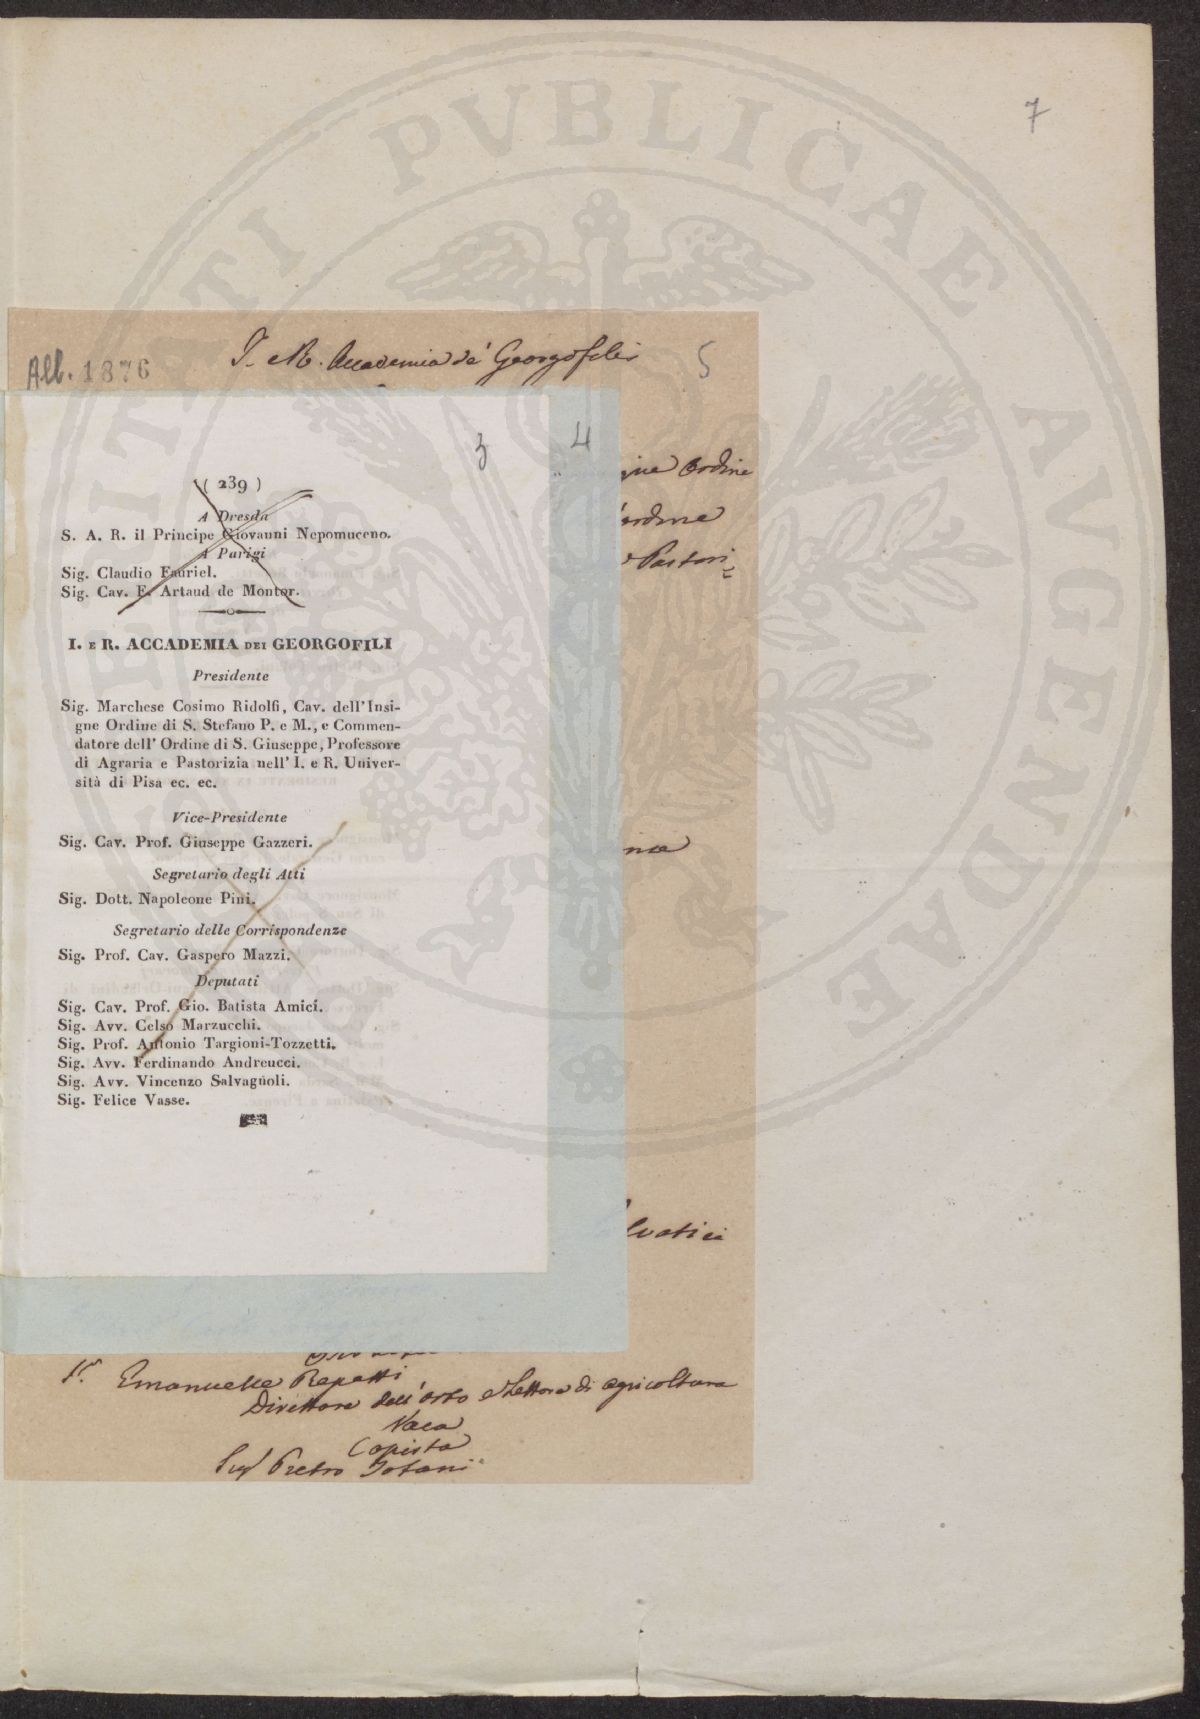 7
PVBLICAE
All. 1876
I. e R. Accademia de' Georgofili
5
3
4
gne Ordine
ordine
Pastori
(239)
A Dresda
S. A. R. il Principe Giovanni Nepomuceno.
A Parigi
Sig. Claudio Fauriel.
Sig. Cav. E. Artaud de Montor.
I. E R. ACCADEMIA DEI GEORGOFILI
Presidente
Sig. Marchese Cosimo Ridolfi, Cav. dell'Insi-
gne Ordine di S. Stefano P. e M., e Commen-
datore dell' Ordine di S. Giuseppe, Professore
di Agraria e Pastorizia nell' I. e R. Univer-
sità di Pisa ec. ec.
Vice-Presidente
Sig. Cav. Prof. Giuseppe Gazzeri.
Segretario degli Atti
Sig. Dott. Napoleone Pini.
Segretario delle Corrispondenze
Sig. Prof. Cav. Gaspero Mazzi.
Deputati
Sig. Cav. Prof. Gio. Batista Amici.
Sig. Avv. Celso Marzucchi.
Sig. Prof. Antonio Targioni-Tozzetti.
Sig. Avv. Ferdinando Andreucci.
Sig. Avv. Vincenzo Salvagnoli.
Sig. Felice Vasse.
AVGENDAE
Emanuelle Repetti
Direttore dell'orto e Lettore di agricoltura
Vaca
Copista
Sig Pietro